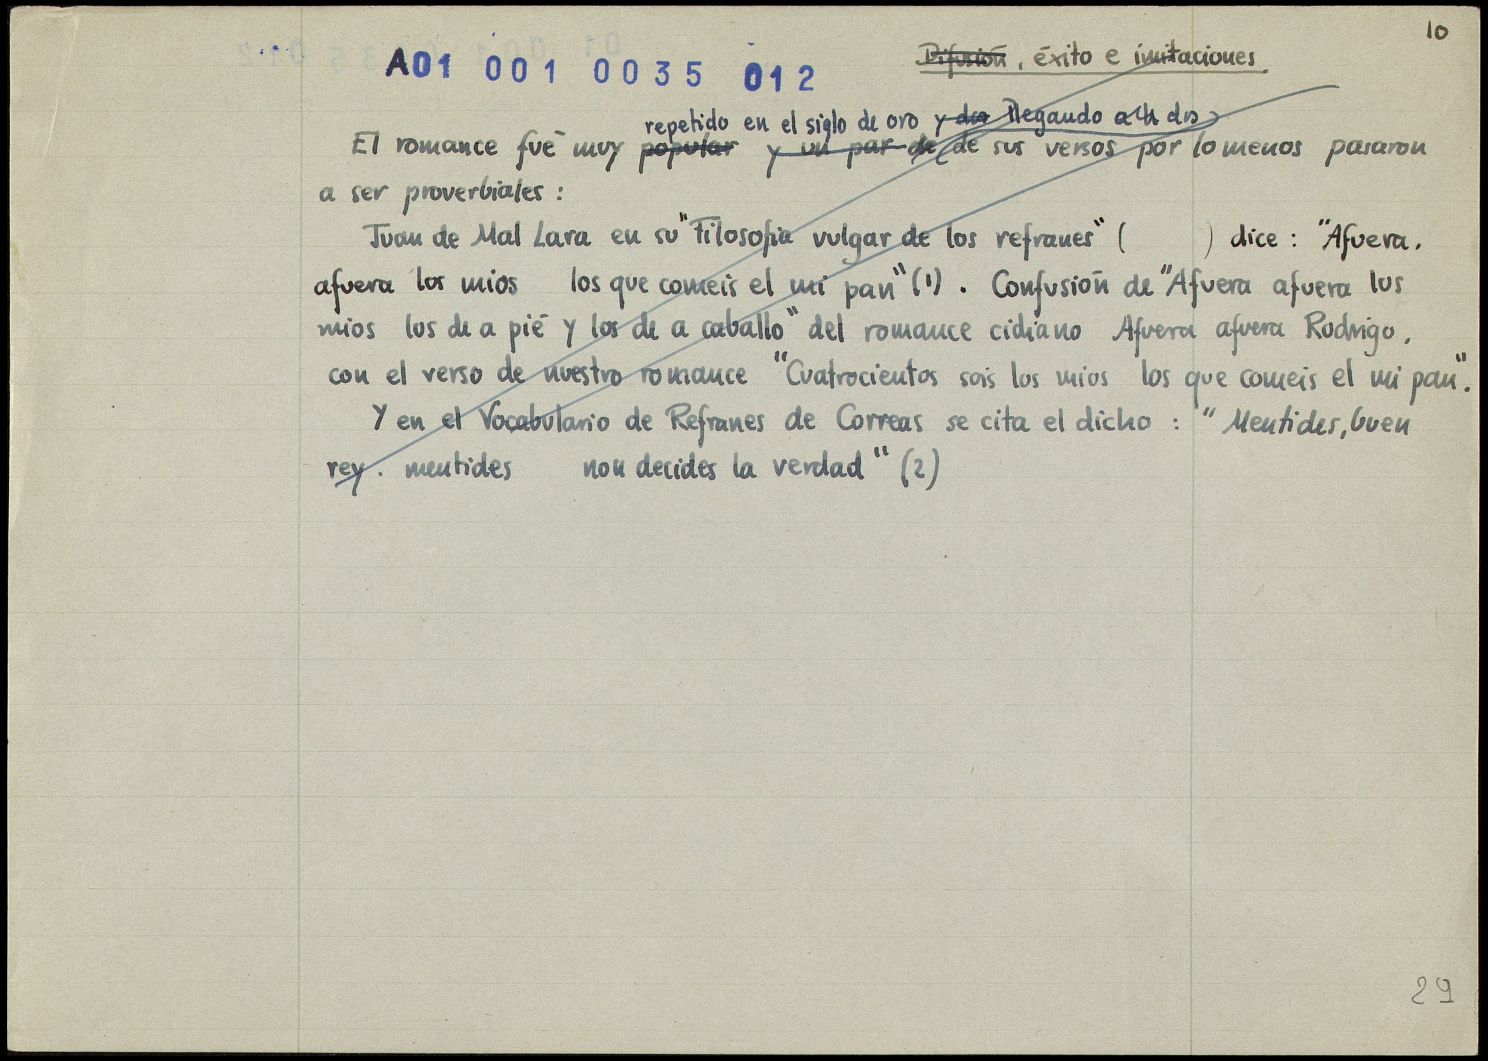 10
A01 001 0035 012
Difusión, éxito e imitaciones.
repetido en el siglo de oro y dos llegando a dos
El romance fué muy popular y un par de de sus versos por lo menos pasaron
a ser proverbiales :
Juan de Mal Lara en su "Filosofia vulgar de los refranes" ( ) dice : "Afuera,
afuera los mios los que comeis el mi pan" (1) . Confusión de "Afuera afuera los
mios los de a pié y los de a caballo" del romance cidiano Afuera afuera Rodrigo,
con el verso de nuestro romance "Cuatrocientos sois los mios los que comeis el mi pan".
Y en el Vocabulario de Refranes de Correas se cita el dicho : "Mentides, buen
rey. mentides non decides la verdad" (2)
29